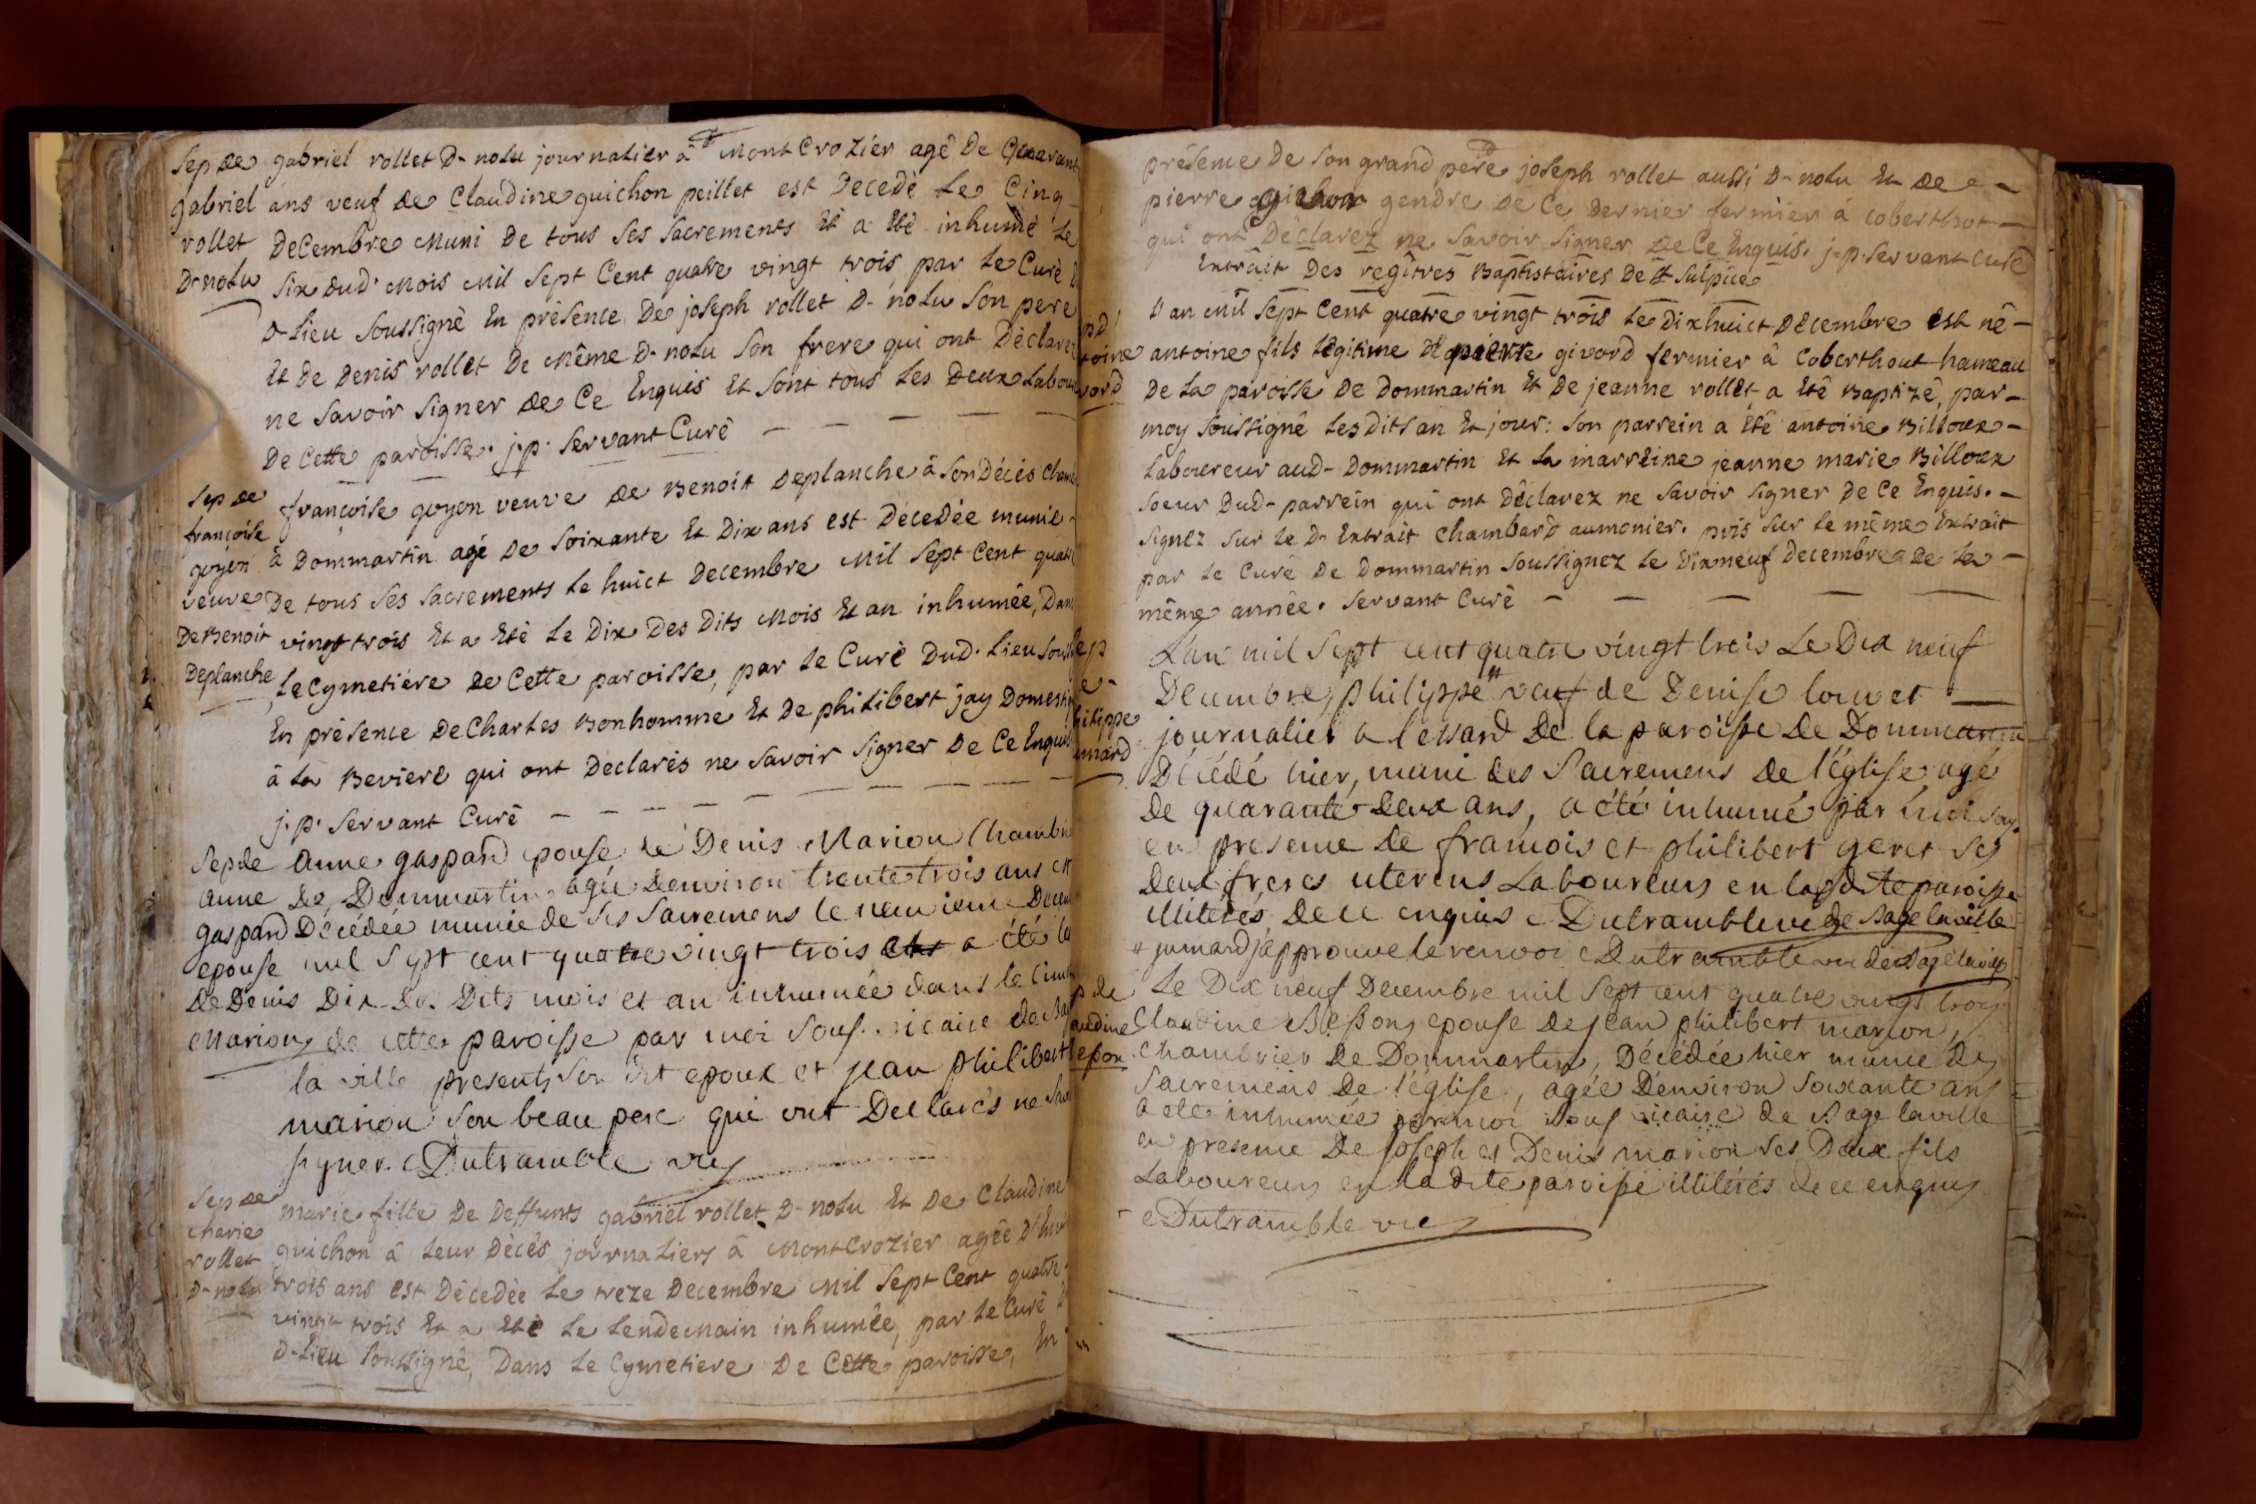 Sep de gabriel rollet D- nolu journalier à MontCrozier agé De Quarant
gabriel ans veuf de Claudine guichon peillet est Decedé le Cinq
rollet Decembre Muni De tous ses sacrements Et a Eté inhumé le
D-nolu six dud. Mois Mil Sept Cent quatre vingt trois par le Curé
D-lieu Soussigné En présence De joseph rollet D- nolu son pere
Et De Denis rollet De Même D- nolu son frere qui ont Déclarez
ne savoir signer De Ce Enquis Et sont tous les Deux labou
De Cette paroisse. j.p. Servant Curé
Sep de françoise goyon veuve De Benoit Deplanche à son Décès cham
françoise
goyon à Dommartin agé De soixante Et Dix ans est Décedée munie
veuve De tous ses sacrements le huict Decembre Mil Sept Cent quatr
De Benoit vingt trois Et a Eté le Dix Des Dits Mois Et an inhumée, Dans
Deplanche le Cymetiére De Cette paroisse, par le Curé Dud. lieu souss
En présence De Charles Bonhomme Et De philibert jay Domesti
à la Beviere qui ont Declarés ne savoir signer De Ce Enquis
j.p. Servant Curé
Sep de Anne gaspard epouse de Denis Marion Chambri
anne De Dommartin agée Denviron trente trois ans est
gaspard Décédée munie de ses Sacremens le neuvieme Decem
epouse mil Sept cent quatre vingt trois a été le
De Denis Dix Des Dits mois et an inhumée dans le Cime
Marion de cette paroisse par moi sous. vicaire de Ba
la ville presents son dit epoux et jean philibert
marion son beau pere qui ont Declarés ne
signer. Dutramble vic
Sep de marie fille De Deffunts gabriel rollet D- nolu Et De Claudine
Marie
rollet guichon à leur Décès journaliers à MontCrozier agée D'
D-nolu trois ans est Décedée le treze Decembre Mil Sept Cent quatre
vingt trois Et a Eté le lendemain inhumée, par le Curé
D-lieu soussigné, Dans le Cymetiere De Cette paroisse, En
présence De son grand pere joseph rollet aussi D- nolu Et De
pierre gendre De Ce Dernier fermier à Coberthot
qui ont Déclarez ne savoir signer De Ce Enquis. j.p. Servant curé
Extrait Des regîtres Baptistaires De St Sulpice
L'an mil Sept Cent quatre vingt trois le Dixhuict Décembre est né
toine antoine fils légitime De pierre givord fermier à Coberthout hameau
vord De la paroisse De Dommartin Et De jeanne rollet, a Eté Baptizé, par
moy soussigné les Dits an Et jour: son parrein a Eté antoine Billoux
laboureur aud- Dommartin Et la marreine jeanne marie Billoux
soeur Dud- parrein qui ont Déclarez ne savoir signer De Ce Enquis.
signez sur le D. Extrait Chambard aumonier. puis sur le même Extrait
par le Curé De Dommartin soussignez le Dixneuf Decembre De la
même année. Servant Curé
L'an mil Sept cent quatre vingt trois Le Dix neuf
Decembre, philippe # veuf de Denise louvet
hilippe journalier a lessard De la paroisse De Dommartin
mard Décédé hier, muni des Sacremens De l'église agé
De quarante Deux ans, a été inhumé par moi sous.
en presence De francois et philibert geret ses
Deux freres uterins Laboureurs en lad te paroisse
illiterés De ce enquis Dutramble vic de Bage la ville
# jumard j'approuve le renvoi Dutramble vic de Bage la ville
p de Le Dix neuf Decembre mil Sept cent quatre vingt trois
audine Claudine Besson, epouse De jean philibert marion,
esson Chambrier De Dommartin, Décédée hier munie des
Sacremens De l'église, agée D'environ soixante ans
a été inhumée par moi sous vicaire de Bage la ville
en presence De Joseph et Denis marion ses Deux fils
Laboureurs en la dite paroisse illiterés de ce enquis
Dutramble vic